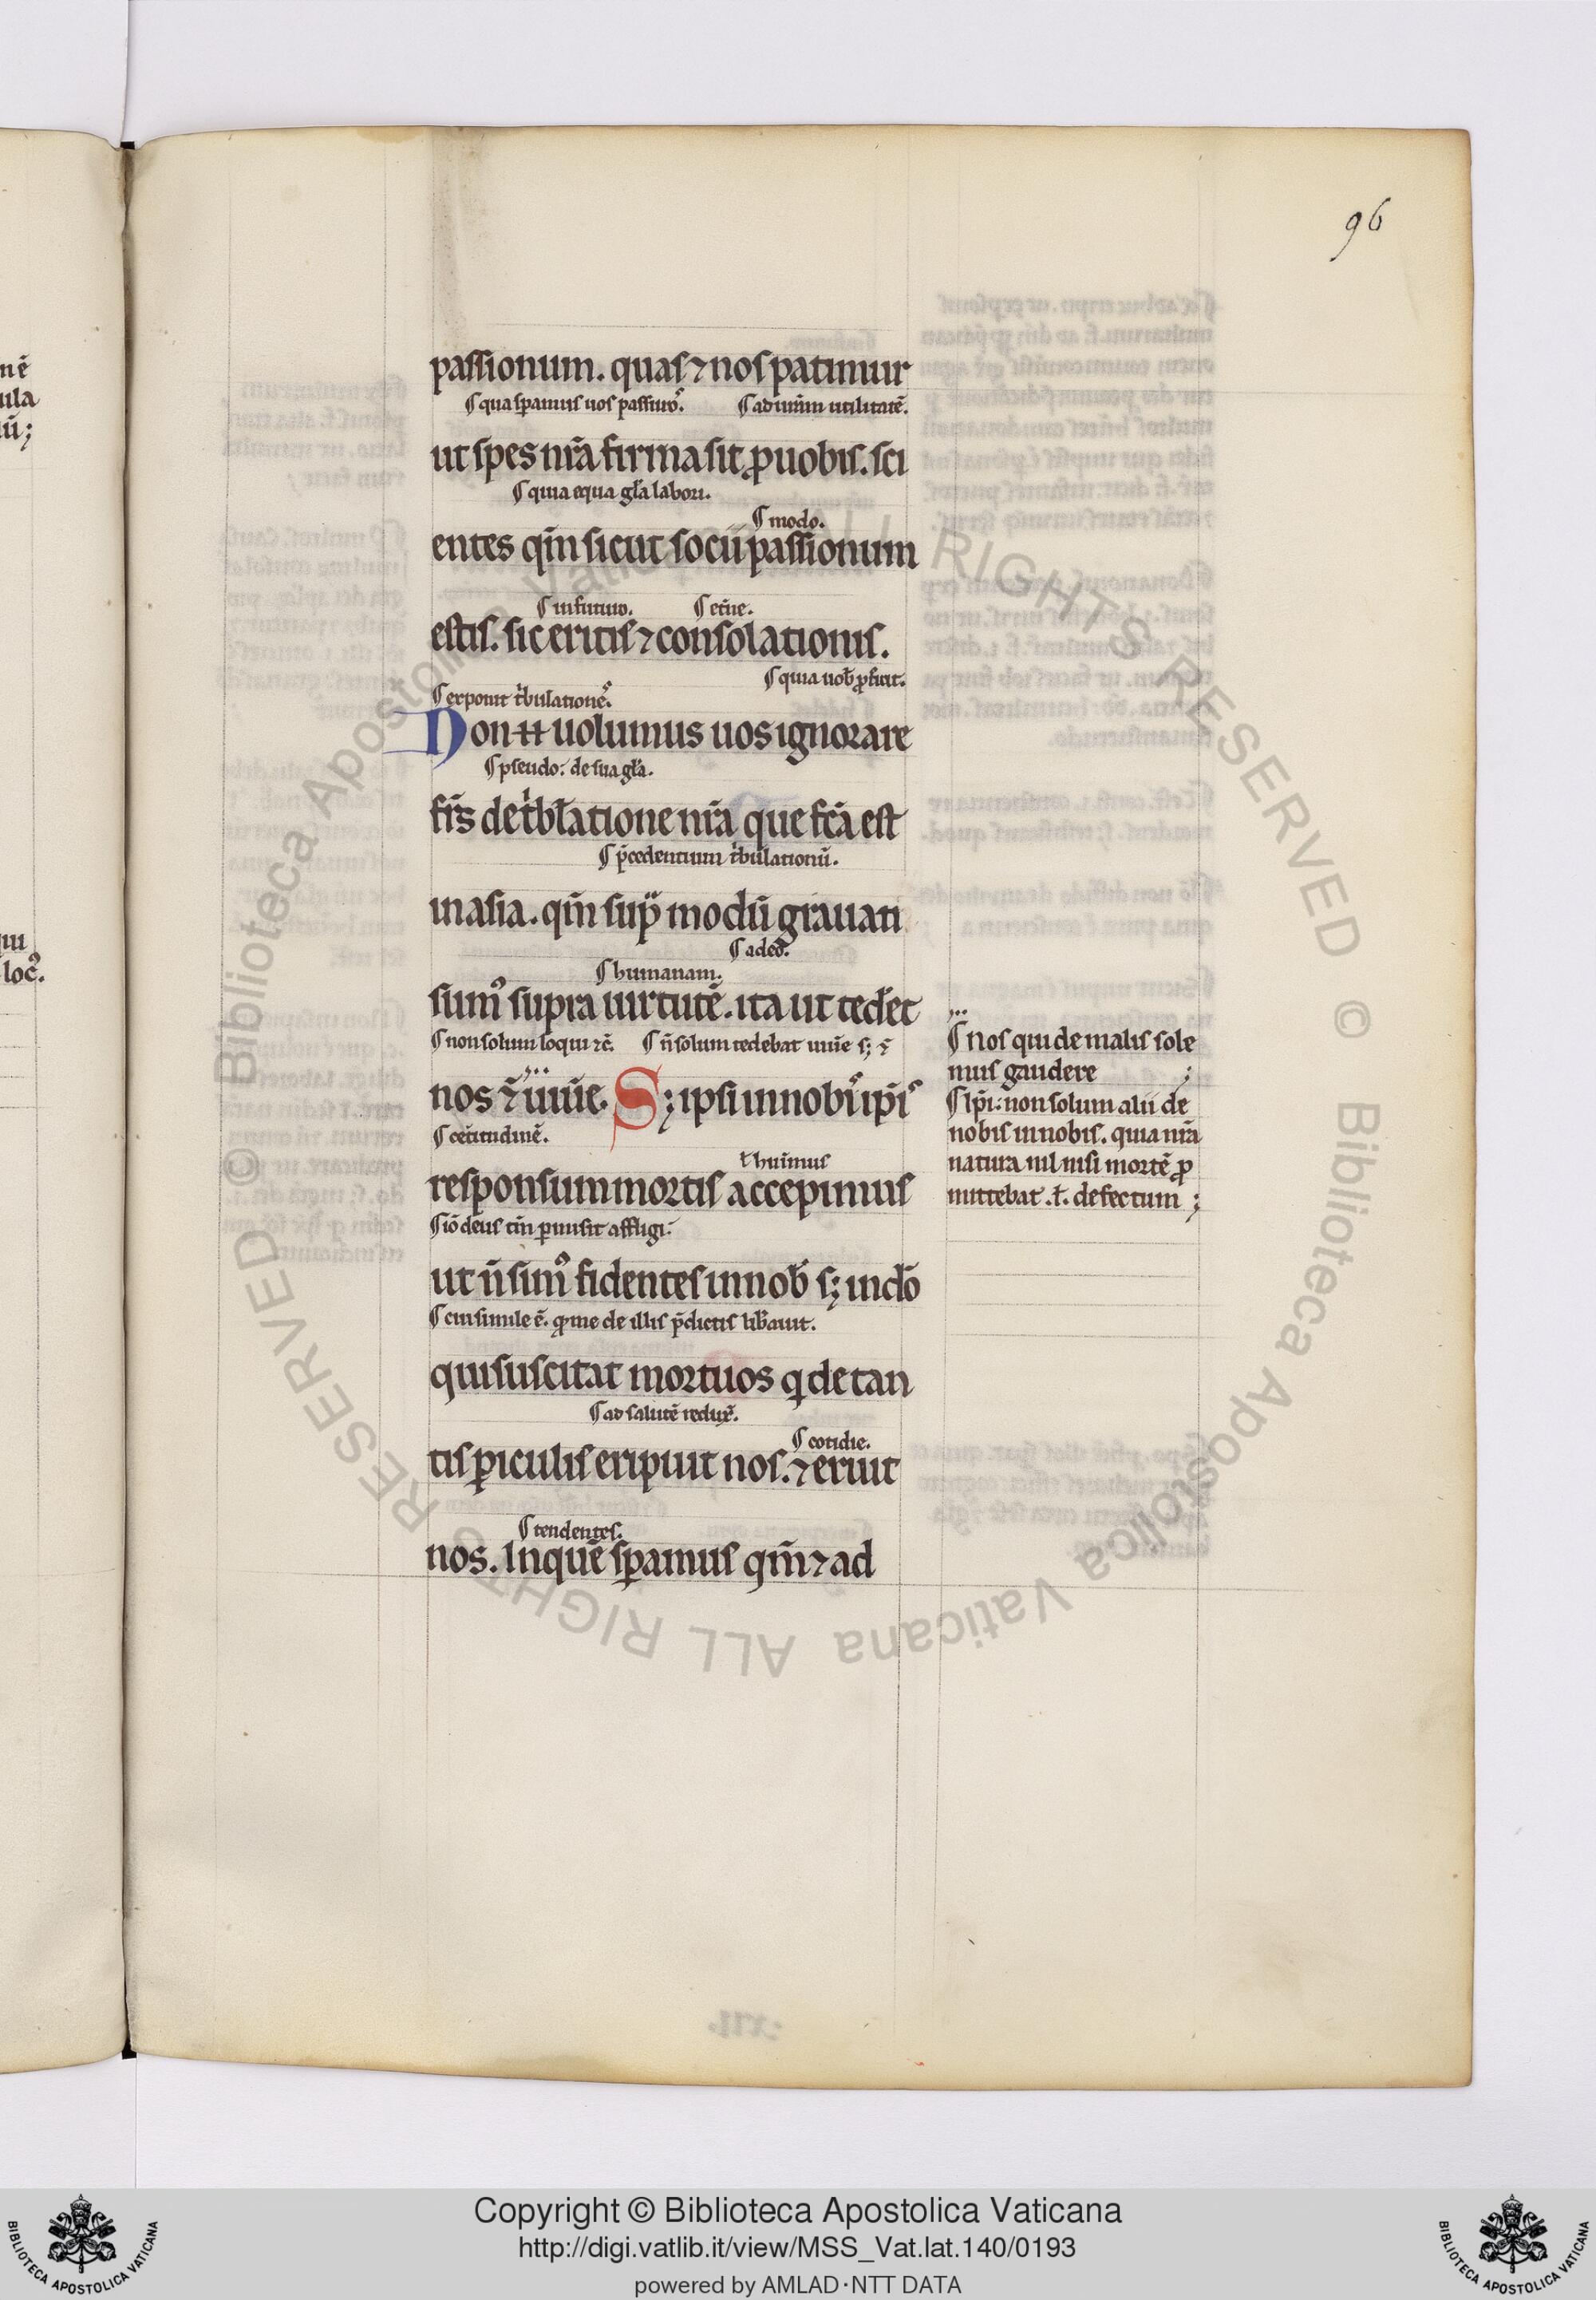 96
passionum. quas ⁊ nos patimur
¶ qua speramus uos passiuros.
¶ ad ur̃am utilitatẽ.
ut spes nr̃a firma sit ꝓ uobis. sci
¶ quia equa gl̃a labori.
¶ modo.
entes qm̃ sicut socii passionum
¶ in futuro.
¶ et̃ne.
estis. sic eritis ⁊ consolationis.
¶ quia uob̃ ꝓficit.
¶ exponit t̾bulationẽs.
Non ⁊̃ uolumus uos ignorare
¶ pseudo: de sua gl̃a.
fr̃s de t̾bl̃atione nr̃a que fc̃a est
¶ p̃cedentium t̾bulationũ.
in asia. qm̃ sup̱ modũ grauati
¶ adeo.
¶ humanam.
sum᷒ supra uirtutẽ. ita ut ted̃et
¶ non solum loqui ⁊c̃.
¶ ñ solum tedebat uiũe sꝫ ⁊
nos ⁊̃ uiũe. Sꝫ ipsi in nobis ip̃is
¶ cer̃titudinẽ.
ɫ habuimus
responsum mortis accepimus
¶ iõ deus tm̃ ꝑmisit affligi.
ut ñ sim᷒ fidentes in nob̃ sꝫ in dõ
¶ cui simile ẽ. ꝙ me de illis p̃dictis lib̃auit.
qui suscitat mortuos q̇ de tan
¶ ad salutẽ redux̃.
¶ cotidie.
tis ꝑiculis eripuit nos. ⁊ eruit
¶ tendentes.
nos. In quẽ sꝑamus qm̃ ⁊ ad
¶ Nos qui de malis sole
mus gaudere ;
¶ ip̃i: non solum alii de
nobis in nobis. quia nr̃a
natura nil nisi mortẽ ꝓ
mittebat .ɫ. defectum ;
nẽ
ula
ũ;
loc᷒.
© Biblioteca Apostolica Vaticana ALL RIGHTS RESERVED © Biblioteca Apostolica Vaticana ALL RIGHTS RESERVED
Copyright © Biblioteca Apostolica Vaticana
http://digi.vatlib.it/view/MSS_Vat.lat.140/0193
powered by AMLAD·NTT DATA
BIBLIOTECA APOSTOLICA VATICANA
BIBLIOTECA APOSTOLICA VATICANA